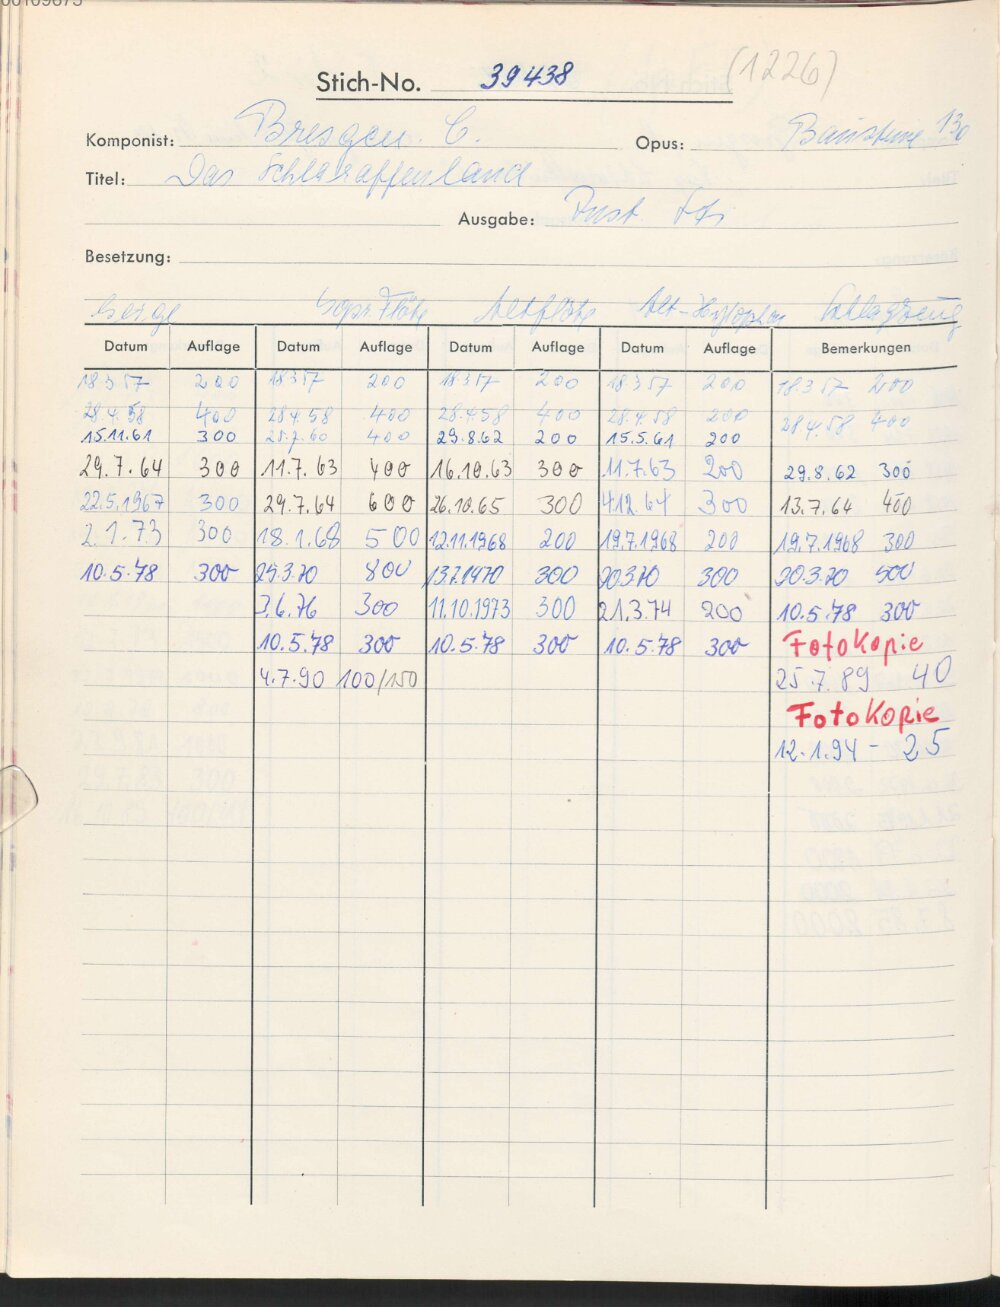 Stich-No. 39438 (1226)
Komponist: Bresgen. C. Opus: Bausteine 130
Titel: Das Schlaraffenland
Ausgabe: Inst. St.
Besetzung:
Geige Sopr. Flöte Altflöte Alt-Xylophon Schlagzeug
Datum Auflage Datum Auflage Datum Auflage Datum Auflage Bemerkungen
18.3.57 200 18.3.57 200 18.3.57 200 18.3.57 200 18.3.57 200
28.4.58 400 28.4.58 400 28.4.58 400 28.4.58 200 28.4.58. 400
15.11.61 300 25.7.60 400 29.8.62 200 15.5.61 200
29.7.64 300 11.7.63 400 16.10.63 300 11.7.63 200 29.8.62 300
22.5.1967 300 29.7.64 600 26.10.65 300 4.12.64 300 13.7.64 400
2.1.73 300 18.1.68 500 12.11.1968 200 19.7.1968 200 19.7.1968 300
10.5.78 300 25.3.70 800 13.7.1970 300 20.3.70 300 20.3.70 500
3.6.76 300 11.10.1973 300 21.3.74 200 10.5.78 300
10.5.78 300 10.5.78 300 10.5.78 300 Fotokopie
4.7.90 100/150 25.7.89 40
Fotokopie
12.1.94 - 25